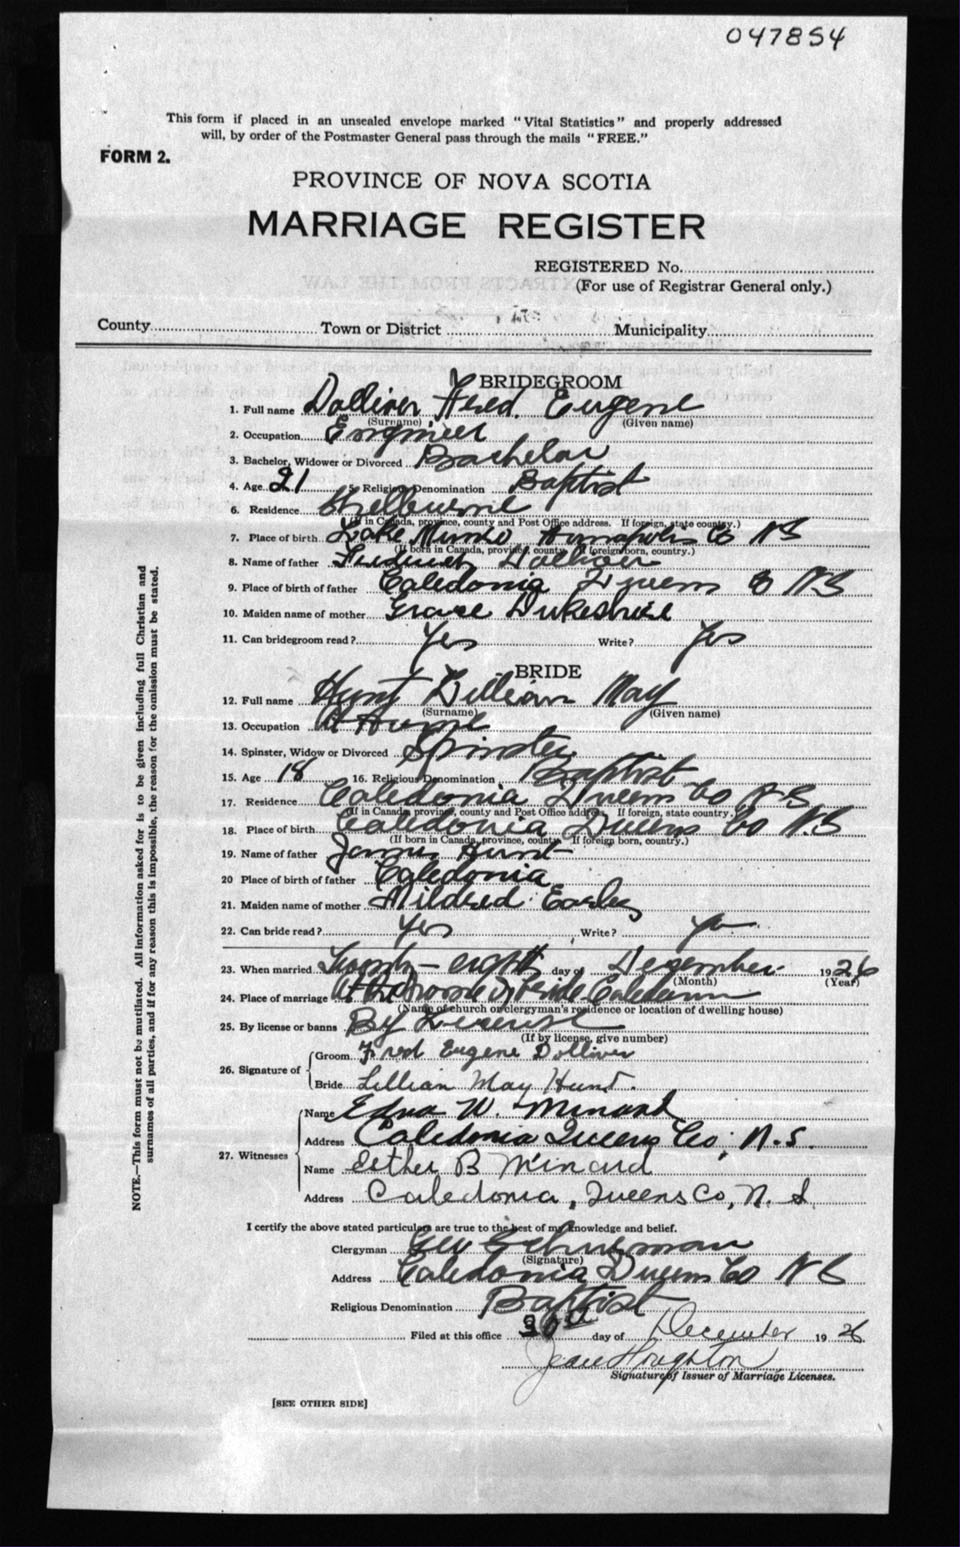 047854
This form if placed in an unsealed envelope marked "Vital Statistics" and properly addressed
will, by order of the Postmaster General pass through the mails "FREE."
FORM 2.
PROVINCE OF NOVA SCOTIA
MARRIAGE REGISTER
REGISTERED No.
(For use of Registrar General only.)
County Town or District Municipality
BRIDEGROOM
1. Full name Dolliver Fred Eugene
(Surname) (Given name)
2. Occupation Engineer
3. Bachelor, Widower or Divorced Bachelor
4. Age 21 5. Religious Denomination Baptist
6. Residence Shelburne
(If in Canada, province, county and Post Office address. If foreign, state country.)
7. Place of birth Lake Munro Annapolis Co NS
(If born in Canada, province, county. If foreign born, country.)
8. Name of father Dolliver
9. Place of birth of father Caledonia Queens Co NS
10. Maiden name of mother Grace Dukeshire
11. Can bridegroom read? Yes Write? Yes
BRIDE
12. Full name Hunt Lillian May
(Surname) (Given name)
13. Occupation At Home
14. Spinster, Widow or Divorced Spinster
15. Age 18 16. Religious Denomination Baptist
17. Residence Caledonia Queens Co NS
(If in Canada, province, county and Post Office address. If foreign, state country.)
18. Place of birth Caledonia Queens Co NS
(If born in Canada, province, county. If foreign born, country.)
19. Name of father James Hunt
20 Place of birth of father Caledonia
21. Maiden name of mother Mildred
22. Can bride read? Yes Write? Yes
23. When married Twenty-eighth day of December 1926
(Month) (Year)
24. Place of marriage At the home of bride Caledonia
(Name of church or clergyman's residence or location of dwelling house)
25. By license or banns By License
(If by license, give number)
26. Signature of
Groom Fred Eugene Dolliver
Bride Lillian May Hunt.
27. Witnesses
Name Edna W. Minard
Address Caledonia Queens Co, N.S.
Name Esther B Minard
Address Caledonia, Queens Co, N. S.
I certify the above stated particulars are true to the best of my knowledge and belief.
Clergyman
(Signature)
Address Caledonia Queens Co NS
Religious Denomination Baptist
Filed at this office 30th day of December 1926
Houghton
Signature of Issuer of Marriage Licenses.
[SEE OTHER SIDE]
NOTE.—This form must not be mutilated. All information asked for is to be given including full Christian and
surnames of all parties, and if for any reason this is impossible, the reason for the omission must be stated.